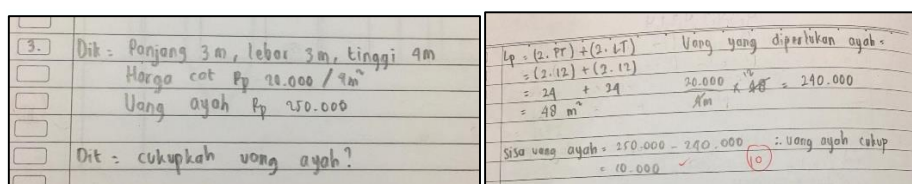 3. Dik = Panjang 3 m, lebar 3 m, tinggi 4m
Harga cat Rp 20.000 / 4m²
Uang ayah Rp 250.000
Dit = cukupkah uang ayah?
Lp = (2.PT) + (2.LT)
= (2.12) + (2.12)
= 24 + 24
= 48 m²
Uang yang diperlukan ayah =
20.000/4m × 48 12 = 240.000
sisa uang ayah = 250.000 - 240.000
= 10.000
∴ uang ayah cukup
10